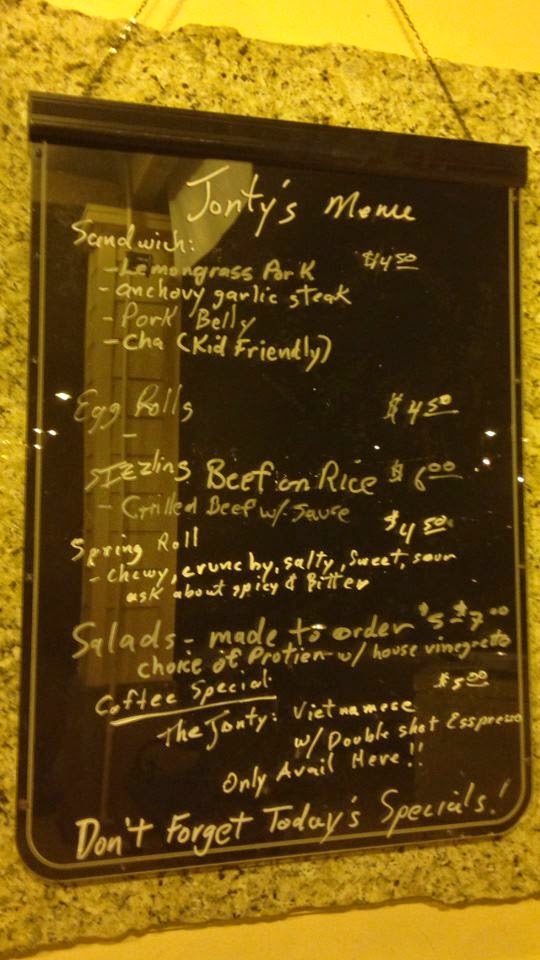 Jonty's Menu
Sandwich: $4.50
-Lemongrass Pork
-anchovy garlic steak
-Pork Belly
-Cha (Kid Friendly)
Egg Rolls $4.50
-
Sizzling Beef on Rice $6.00
-Grilled Beef w/ Sauce
Spring Roll $4.50
-Chewy, crunchy, salty, sweet, sour
ask about spicy & Bitter
Salads - made to order $5-$7.00
choice of Protien w/ house vinegrete
Coffee Special $5.00
The Jonty: Vietnamese
w/ Double shot Esspresso
Only Avail Here!!
Don't Forget Today's Specials!